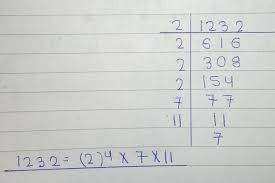 2 | 1232
2 | 616
2 | 308
2 | 154
7 | 77
11 | 11
7
1232 = (2)4 x 7 x 11